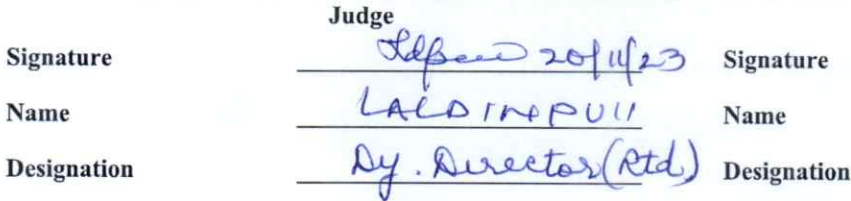 Judge
Signature 20/11/23 Signature
Name LALDINPUII Name
Designation Dy. Director (Rtd) Designation